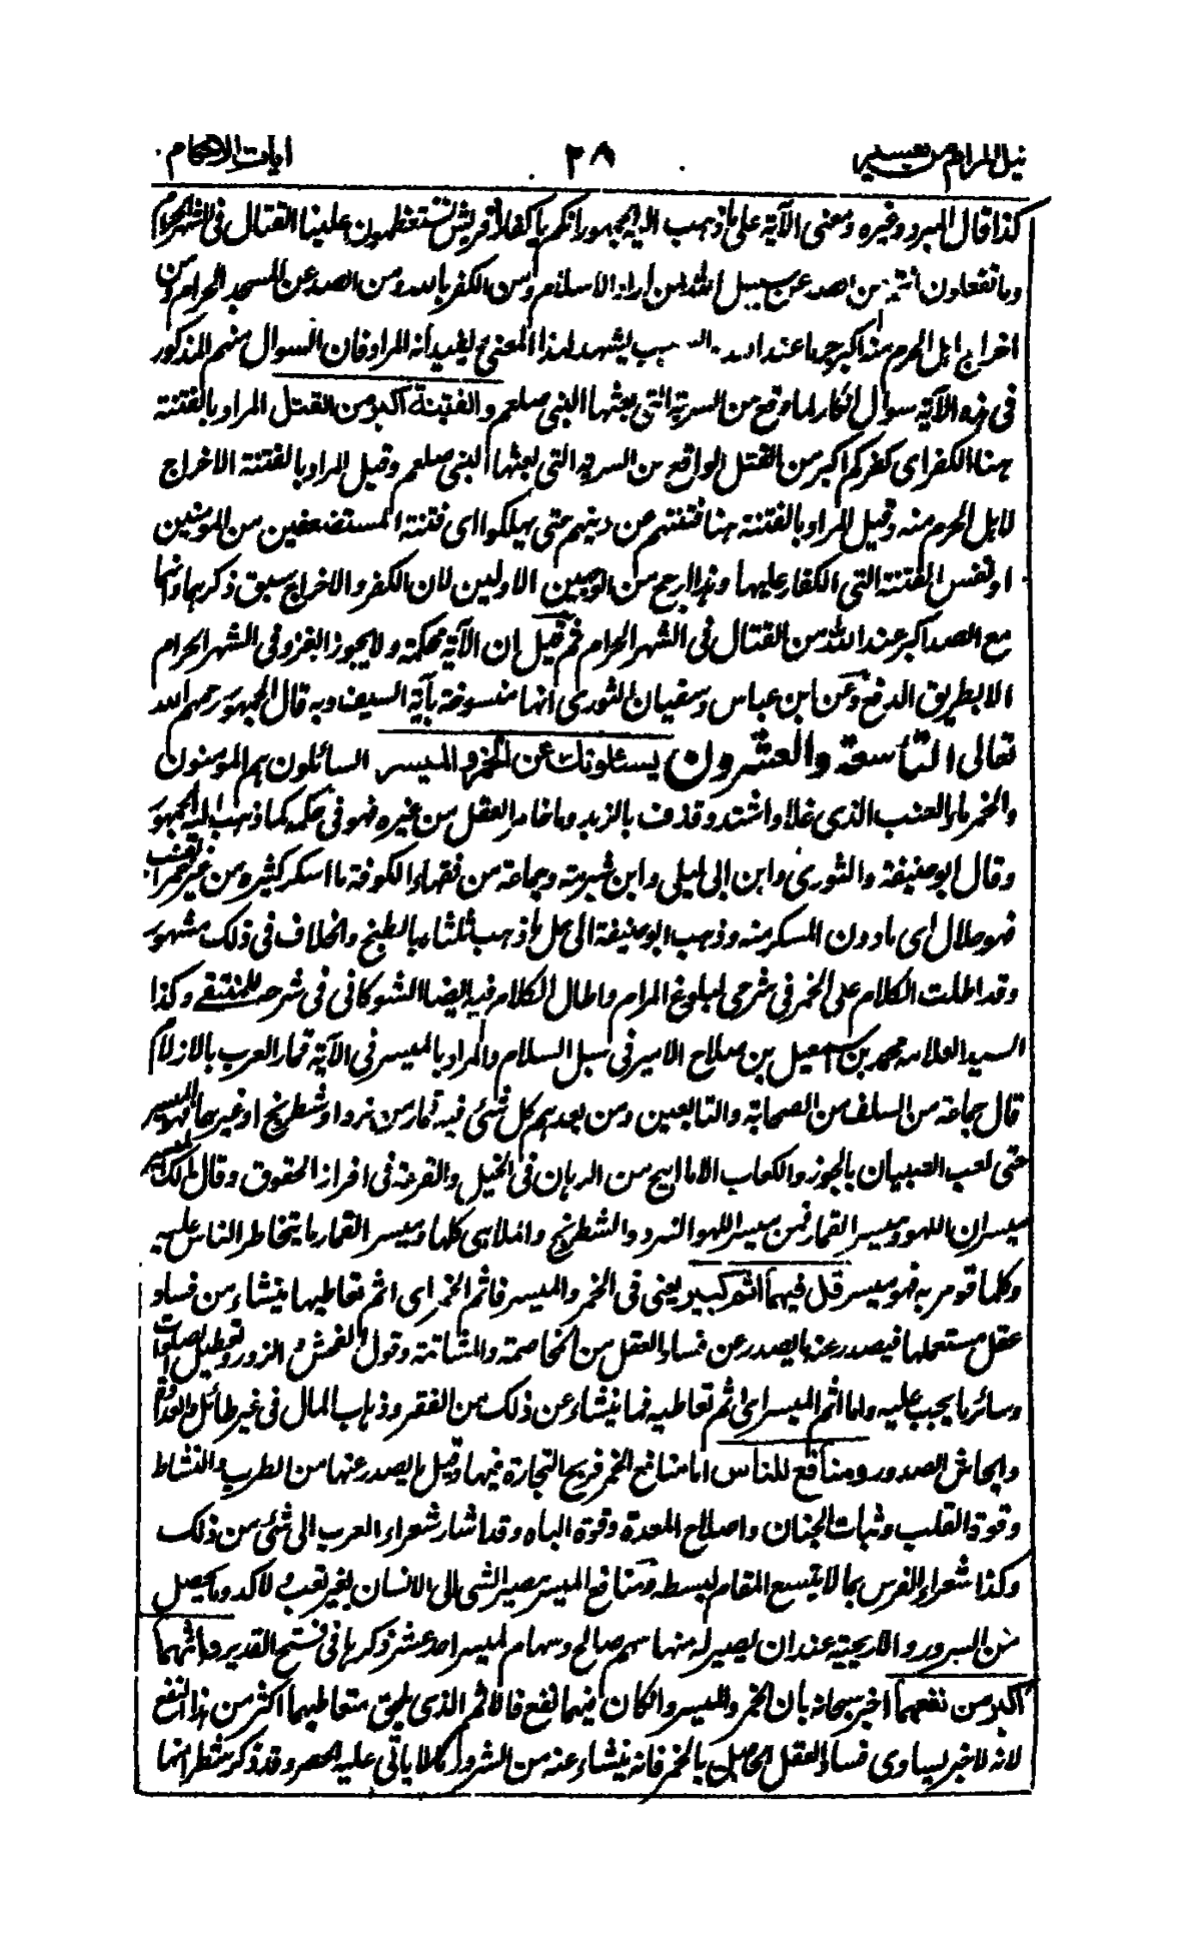 نيل المرام من تفسير ٢٨ ايات الاحكام
كذا قال المبرد وغيره ومعنى الآية على ما ذهب اليه الجمهور انكم يا كفار قريش تستعظمون علينا القتال فى الشهر الحرام
وما تفعلون انتم من الصد عن سبيل الله لمن اراد الاسلام ومن الكفر بالله ومن الصد عن المسجد الحرام ومن
اخراج اهل الحرم منه اكبر جرما عند الله يشهد لهذا المعنى ويفيد انه المراد فان السوال منهم المذكور
فى هذه الآية سوال انكار لما وقع من السرية التى بعثها النبى صلعم والفتنة اكبر من القتل المراد بالفتنة
هنا الكفر اى كفركم اكبر من القتل الواقع من السرية التى بعثها النبى صلعم وقيل المراد بالفتنة الاخراج
لاهل الحرم منه وقيل المراد بالفتنة هنا فتنتهم عن دينهم حتى يهلكوا اى فتنة المستضعفين من المؤمنين
او نفس الفتنة التى الكفار عليها وهذا ارجح من الوجهين الاولين لان الكفر والاخراج سبق ذكرهما وانهما
مع الصد اكبر عند الله من القتال فى الشهر الحرام ثم قيل ان الآية محكمة ولا يجوز الغزو فى الشهر الحرام
الا بطريق الدفع وعن ابن عباس وسفيان الثورى انها منسوخة بآية السيف وبه قال الجمهور رحمهم الله
تعالى التاسعة والعشرون يسئلونك عن الخمر والميسر السائلون هم المؤمنون
والخمر ماء العنب الذى غلا واشتد وقذف بالزبد وما خامر العقل من غيره فهو فى حكمه كما ذهب اليه الجمهور
وقال ابو حنيفة والثورى وابن ابى ليلى وابن شبرمة وجماعة من فقهاء الكوفة ما اسكر كثيره من غير خمر العنب
فهو حلال اى ما دون المسكر منه وذهب ابو حنيفة الى حل ما ذهب ثلثاه بالطبخ والخلاف فى ذلك مشهور
وقد اطلت الكلام على الخمر فى شرحى لبلوغ المرام واطال الكلام فيه ايضا الشوكانى فى شرحه للمنتقے وكذا
السيد العلامه محمد بن اسمعيل بن صلاح الامير فى سبل السلام والمراد بالميسر فى الآية قمار العرب بالازلام
قال جماعة من السلف من الصحابة والتابعين ومن بعدهم كل شئ فيه قمار من نرد او شطرنج او غيرهما فهو الميسر
حتى لعب الصبيان بالجوز والكعاب الا ما ابيح من الرهان فى الخيل والقرعة فى افراز الحقوق وقال مالك الميسر
ميسران ميسر اللهو وميسر القمار فمن ميسر اللهو النرد والشطرنج والملاهى كلها وميسر القمار ما يتخاطر الناس عليه
وكلما قومر به فهو ميسر قل فيهما اثم كبير يعنى فى الخمر والميسر فاثم الخمر اى اثم تعاطيها ينشاء من فساد
عقل مستعملها فيصدر عنه ما يصدر عن فساد العقل من المخاصمة والمشاتمة وقول الفحش و الزور وتعطيل الصلوات
وسائر ما يجب عليه واما اثم الميسر اى اثم تعاطيه فما ينشاء عن ذلك من الفقر وذهاب المال فى غير طائل والعداوة
وايحاش الصدور ومنافع للناس اما منافع الخمر فربح التجارة فيها وقيل ما يصدر عنها من الطرب والنشاط
وقوة القلب وثبات الجنان واصلاح المعدة وقوة الباه وقد اشار شعراء العرب الى شئ من ذلك
وكذا شعراء الفرس بما لا يتسع المقام لبسطه ومنافع الميسر مصير الشئ الى الانسان بغير تعب ولا كد وما يحصل
من السرور والاريحية عند ان يصير له منها سهم صالح وسهام الميسر احد عشر ذكرها فى فتح القدير واثمهما
اكبر من نفعهما اخبر سبحانه بان الخمر والميسر وان كان فيهما نفع فالاثم الذى يلحق متعاطيهما اكثر من هذا النفع
لانه لا خير يساوى فساد العقل الحاصل بالخمر فانه ينشاء عنه من الشرور ما لا ياتى عليه الحصر وقد ذكر شطرا منها